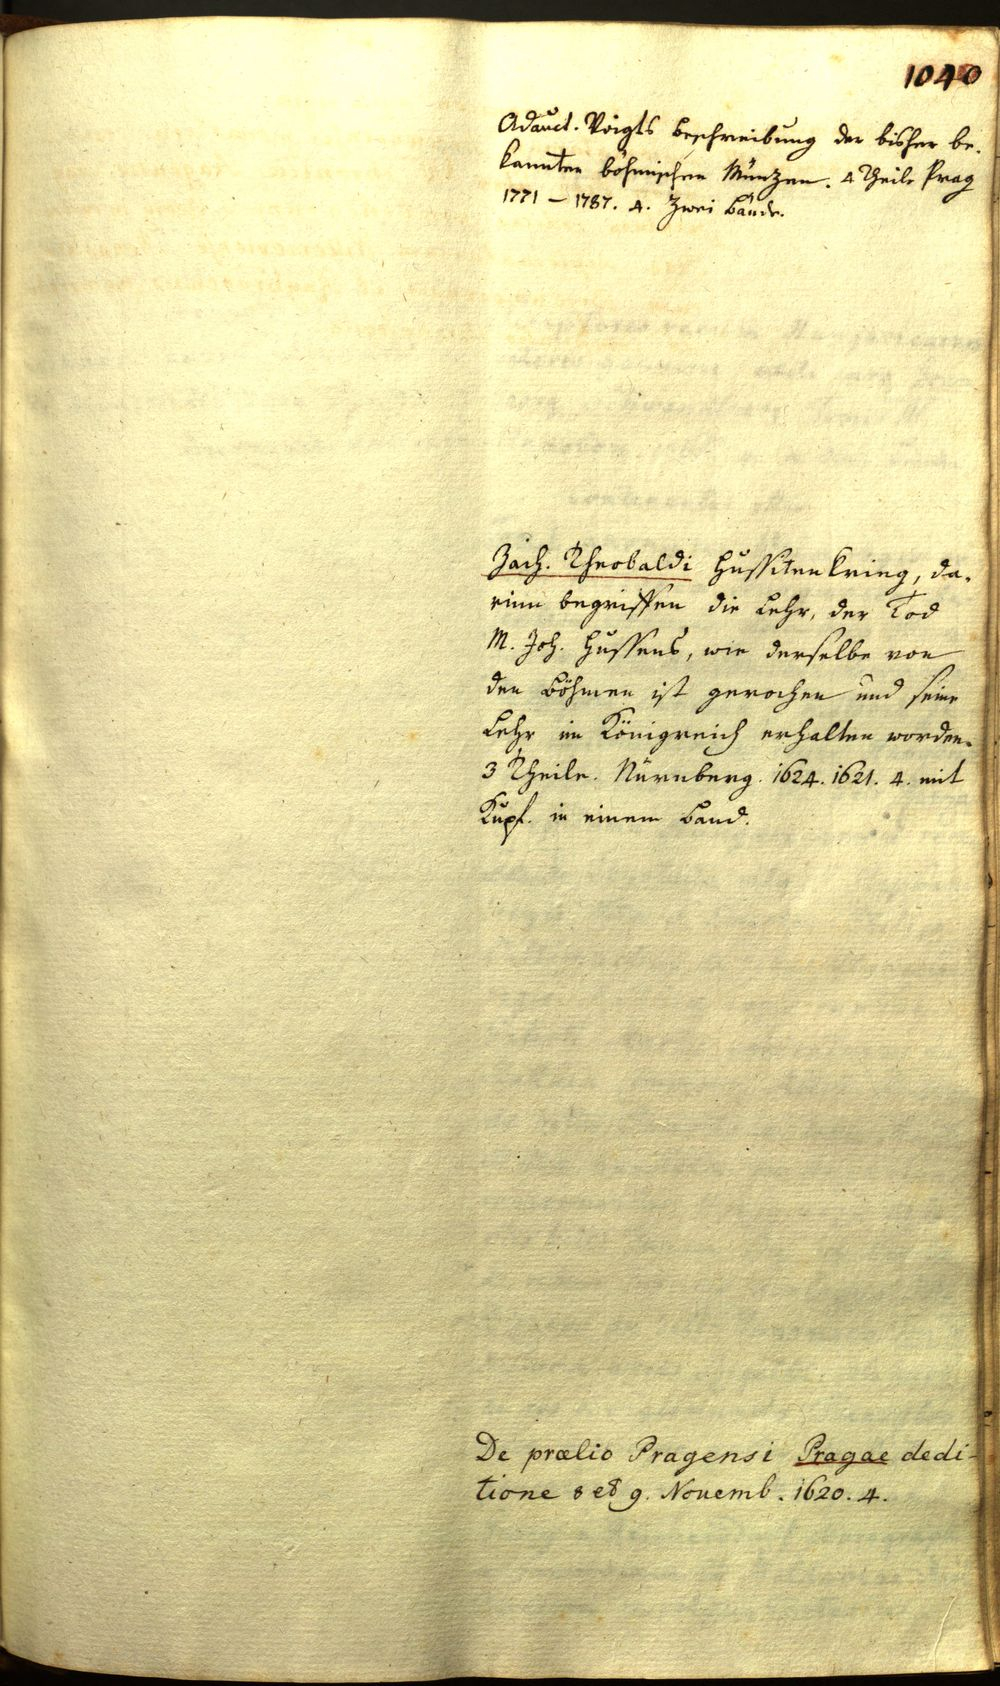 1040
Adauct. Voigts Beschreibung der bisher be-
kannten böhmischen Münzen. 4 Theile Prag
1771 – 1787. 4. Zwei Bände.
Zach. Theobaldi Hussitenkrieg, da-
rinn begriffen die Lehr, der Tod
M. Joh. Hussens, wie derselbe von
den Böhmen ist gerochen und seine
Lehr im Königreich erhalten worden.
3 Theile. Nürnberg. 1624. 1621. 4. mit
Kupf. in einem Band.
De prælio Pragensi Pragae dedi-
tione 8 et 9. Novemb. 1620. 4.